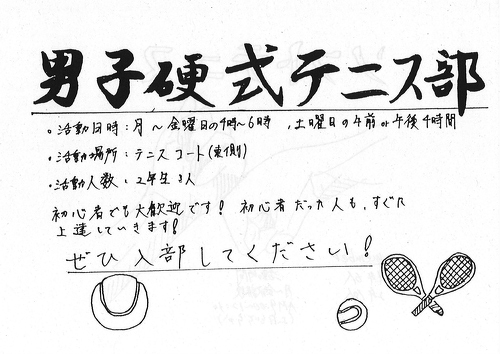 男子硬式テニス部
・活動日時：月〜金曜日の4時〜6時、土曜日の午前or午後4時間
・活動場所：テニスコート(東側)
・活動人数：2年生8人
初心者でも大歓迎です！ 初心者だった人も、すぐに
上達していきます！
ぜひ入部してください！